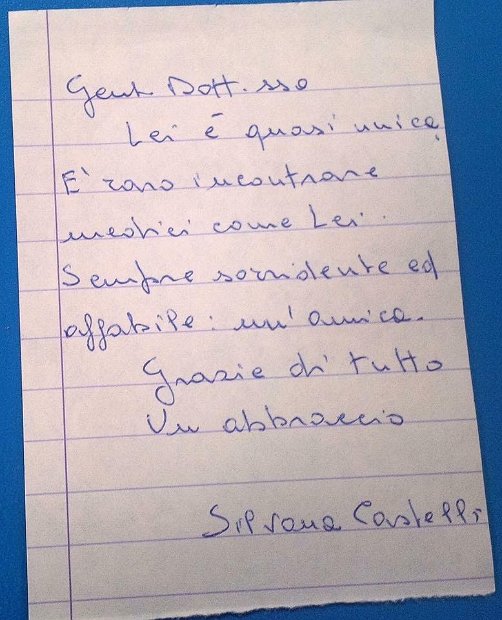 Gent. Dott.ssa
Lei è quasi unica.
E' raro incontrare
medici come Lei.
Sempre sorridente ed
affabile: un'amica.
Grazie di tutto
Un abbraccio
Silvana Castelli